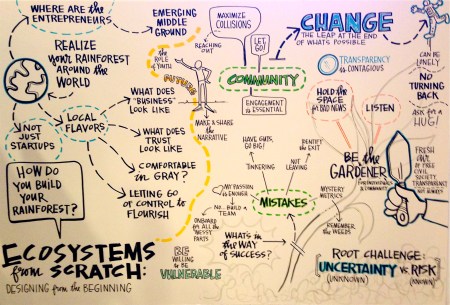 WHERE ARE THE
ENTREPRENEURS
REALIZE
your RAINFOREST
AROUND the
WORLD
NOT
JUST
STARTUPS
LOCAL
FLAVORS
HOW DO
YOU BUILD
YOUR
RAINFOREST?
ECOSYSTEMS
from SCRATCH:
DESIGNING from the BEGINNING
EMERGING
MIDDLE
GROUND
the
ROLE of
Youth
FUTURE
WHAT DOES
"BUSINESS"
LOOK LIKE
WHAT DOES
TRUST
LOOK LIKE
COMFORTABLE
in GRAY?
LETTING GO
of CONTROL to
FLOURISH
MAXIMIZE
COLLISIONS
REACHING
OUT
LET
GO!
COMMUNITY
ENGAGEMENT
is ESSENTIAL
MAKE & SHARE
the
NARRATIVE
CHANGE
THE LEAP AT THE END
OF WHAT'S POSSIBLE
TRANSPARENCY
is CONTAGIOUS
CAN be
LONELY
NO
TURNING
BACK
ASK for a
HUG!
HOLD the
SPACE
for BAD NEWS
LISTEN
HAVE GUTS,
GO BIG!
IDENTIFY
the EXIT
TINKERING
NOT
LEAVING
MY PASSION is
ENOUGH
NO. BUILD a
TEAM
MISTAKES
ONBOARD
for ALL
the MESSY
PARTS
BE
WILLING
to BE
VULNERABLE
WHAT'S in
the WAY
OF SUCCESS?
BE the
GARDENER
MYSTERY
METRICS
REMEMBER
the WEEDS
FRESH
CIVIL
SOCIETY,
TRANSPARENCY
ROOT CHALLENGE:
UNCERTAINTY vs. RISK
(UNKNOWN)
(KNOWN)